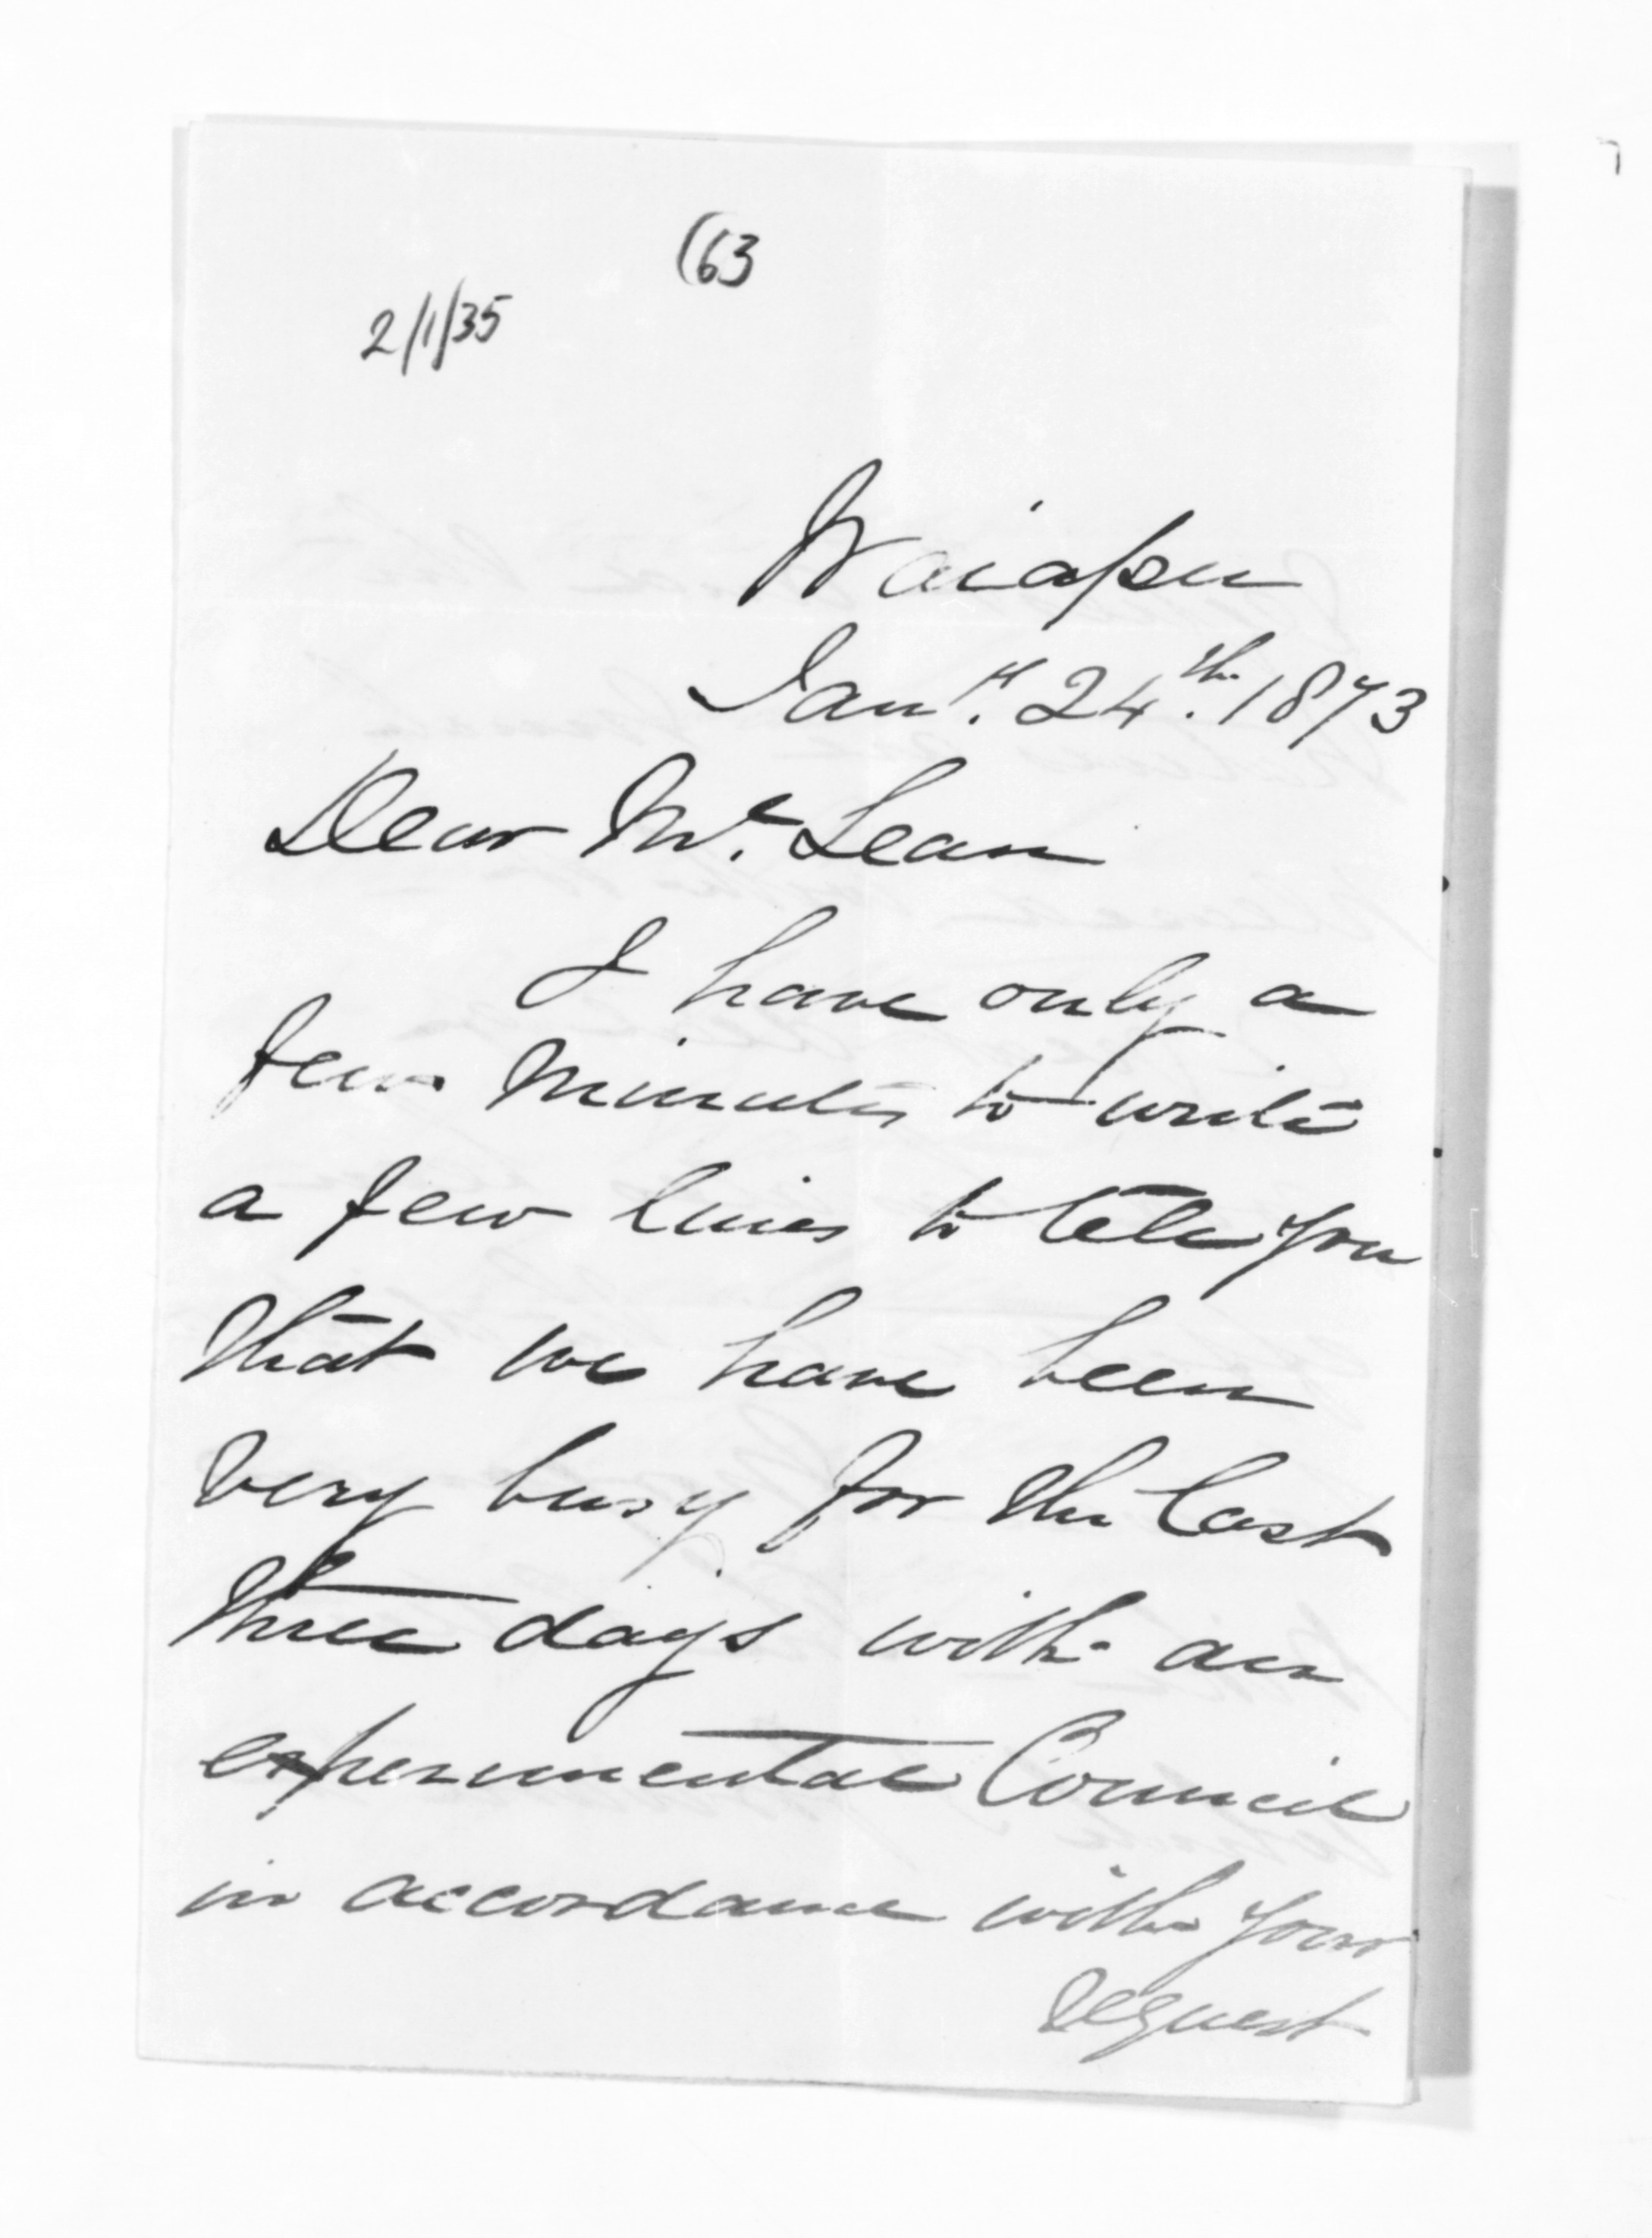 (63
2/1/35
Waiapu
Jany. 24th. 1873
Dear Mc. Lean
I have only a
few minutes to write
a few lines to tell you
that we have been
very busy for the last
three days with an
experimental Council
in accordance with your
request